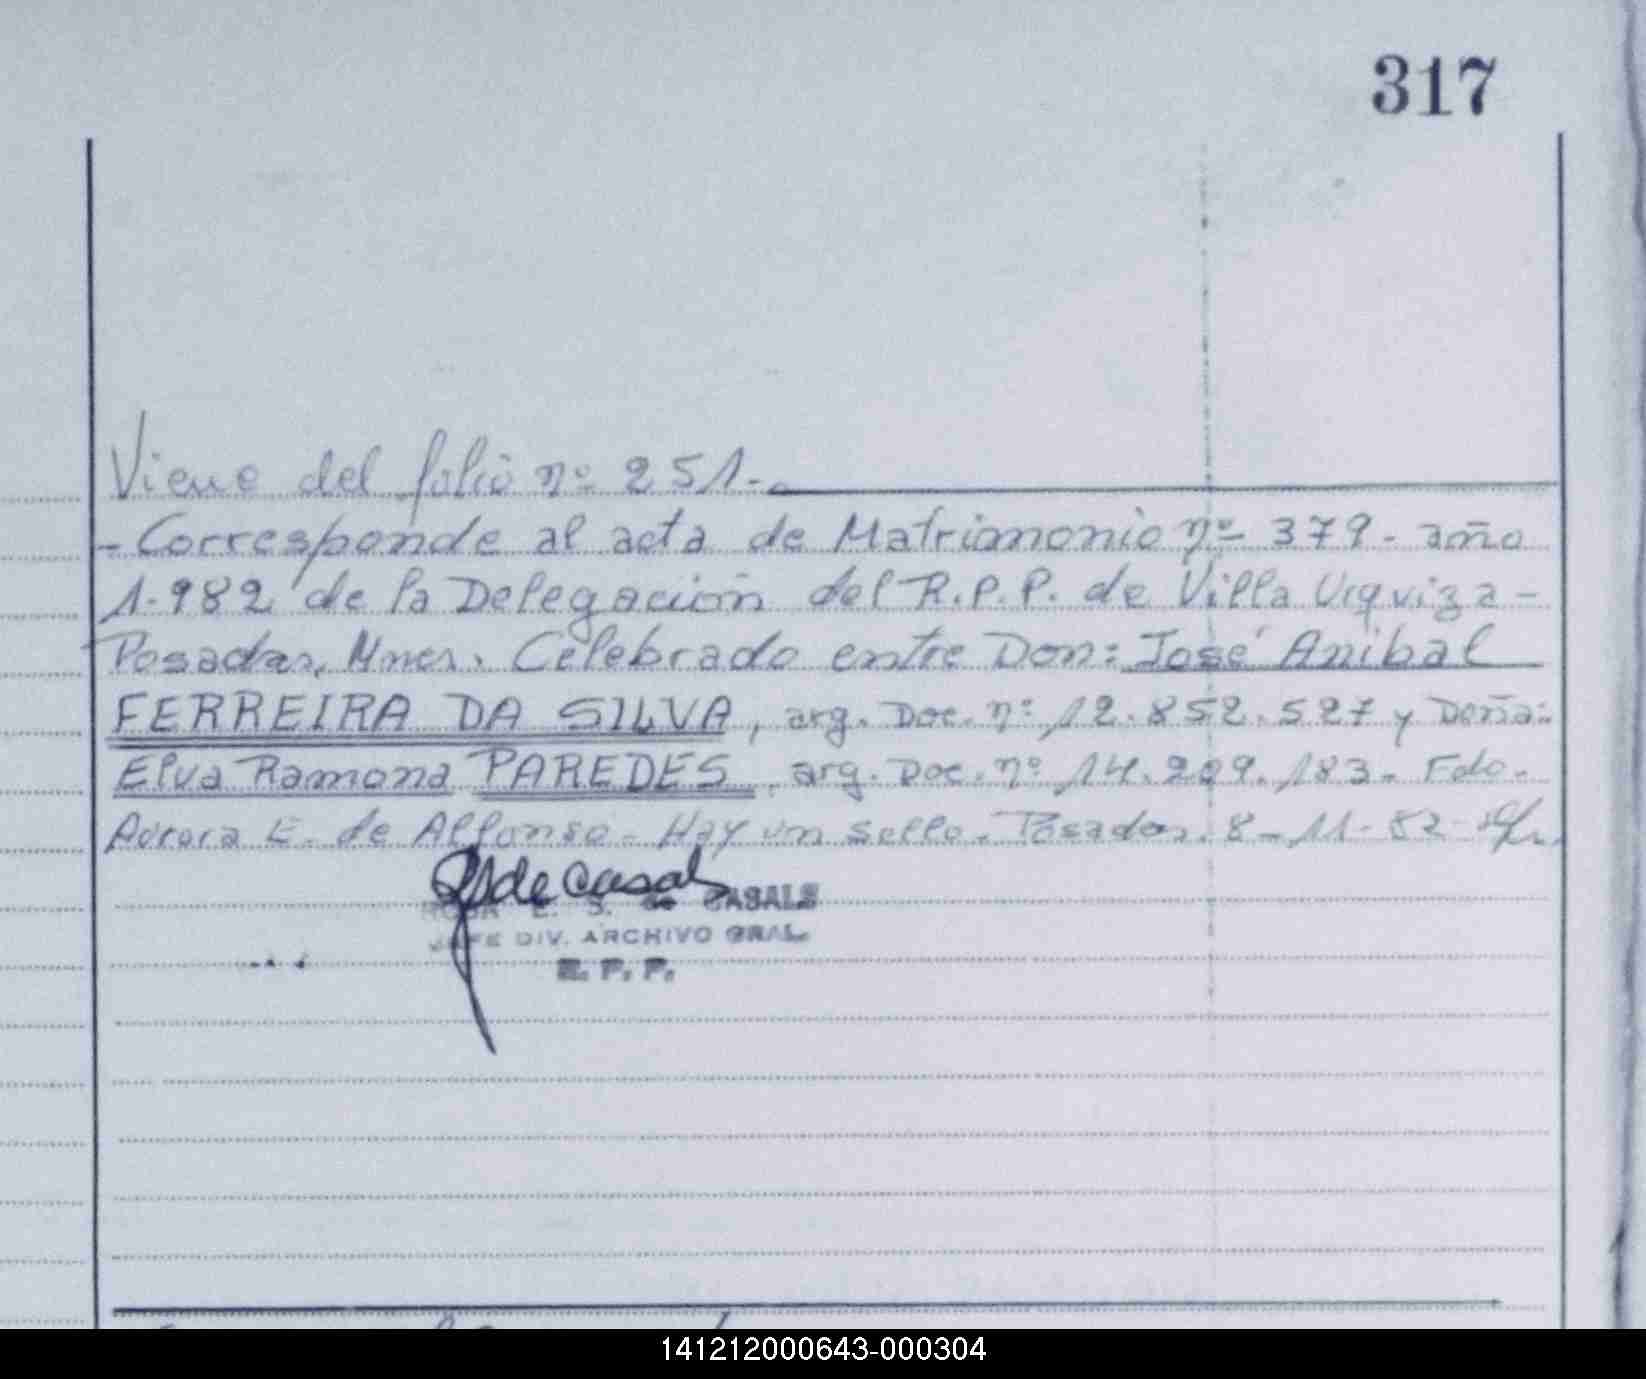 317
Viene del folio nº 251.-
- Corresponde al acta de Matrimonio nº 379- año
1.982 de la Delegación del R.P.P. de Villa Urquiza-
Posadas, Mnes. Celebrado entre Don: José Anibal
FERREIRA DA SILVA, arg. Doc. nº 12.852.527 y Doña:
Elva Ramona PAREDES, arg. Doc. nº 14.209.183- Fdo.
Aurora E. de Alfonso- Hay un sello- Posadas. 8-11-82-
de Casals
ROSA E. S. de CASALS
JEFE DIV. ARCHIVO GRAL.
R. P. P.
141212000643-000304